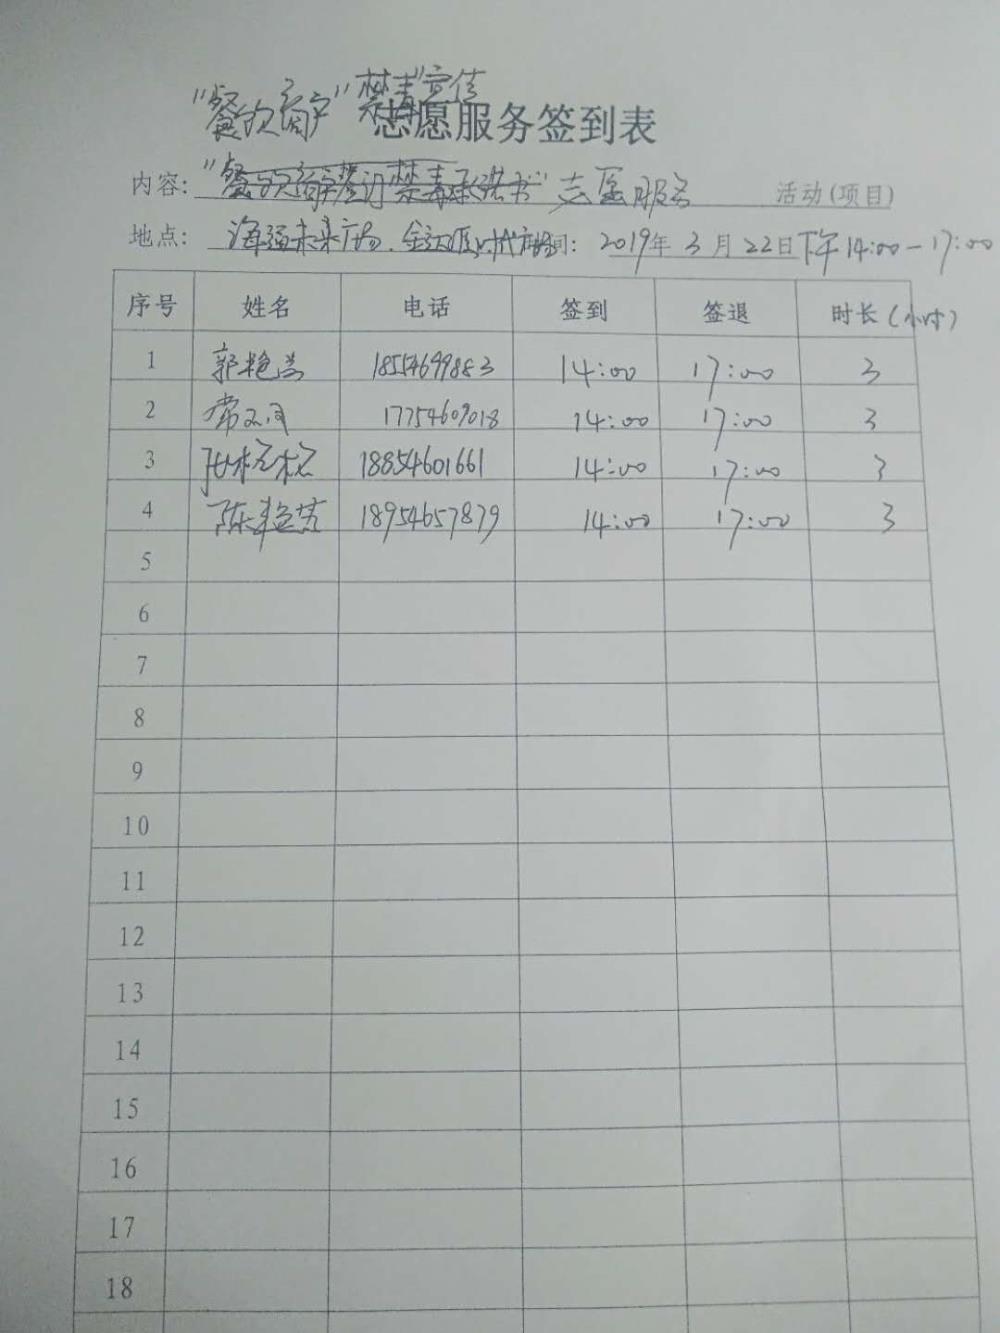 "餐饮商户"禁毒宣传
志愿服务签到表
内容: "餐饮商户签订禁毒承诺书"志愿服务 活动(项目)
地点: 海通未来广场. 时间: 2019年3月22日下午14:00-17:00
序号 姓名 电话 签到 签退 时长(小时)
1 郭艳兰 18554699883 14:00 17:00 3
2 常 17754609018 14:00 17:00 3
3 18854601661 14:00 17:00 3
4 陈 18954657879 14:00 17:00 3
5
6
7
8
9
10
11
12
13
14
15
16
17
18